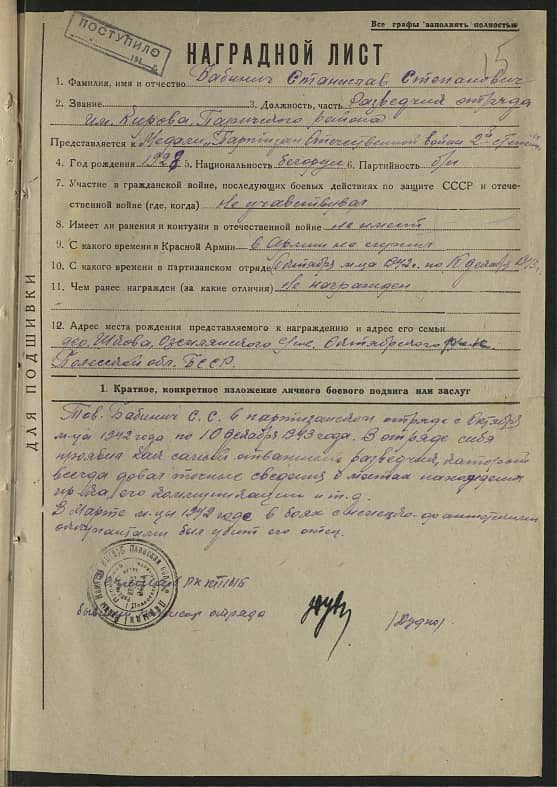 Все графы заполнять полностью
ПОСТУПИЛО
15
НАГРАДНОЙ ЛИСТ
1. Фамилия, имя и отчество Бабинич Станислав Степанович
2. Звание 3. Должность, часть Разведчик отряда
им. Кирова, Паричского района
Представляется к Медали "Партизан Отечественной войны 2й степени"
4. Год рождения 1928 5. Национальность белорус 6. Партийность б/п
7. Участие в гражданской войне, последующих боевых действиях по защите СССР и отече-
ственной войне (где, когда) Не учавствувал
8. Имеет ли ранения и контузии в отечественной войне не имеет
9. С какого времени в Красной Армии в Армии не служил
10. С какого времени в пэртизанском отряде с Октября м-ца 1942г. по 10 декабря 1943г.
11. Чем ранее награжден (за какие отличия) Не награжден
12. Адрес места рождения представляемого к награждению и адрес его семьи
дер. Октябрского
Полесской обл. БССР.
ДЛЯ ПОДШИВКИ
1. Краткое, конкретное изложение личного боевого подвига или заслуг
Тов. Бабинич С.С. в партизанском отряде с Октября
м-ца 1942 года по 10 декабря 1943 года. В отряде себя
проявил как самый отважный разведчик, каторый
всегда давал точные сведения о местах нахождения
врага, его коммуникации и т.д.
В Марте м-цы 1942 года в боях с немецко-фашистскими
оккупантами был убит его отец.
РК КП/б/Б
отряда
/Дудко/